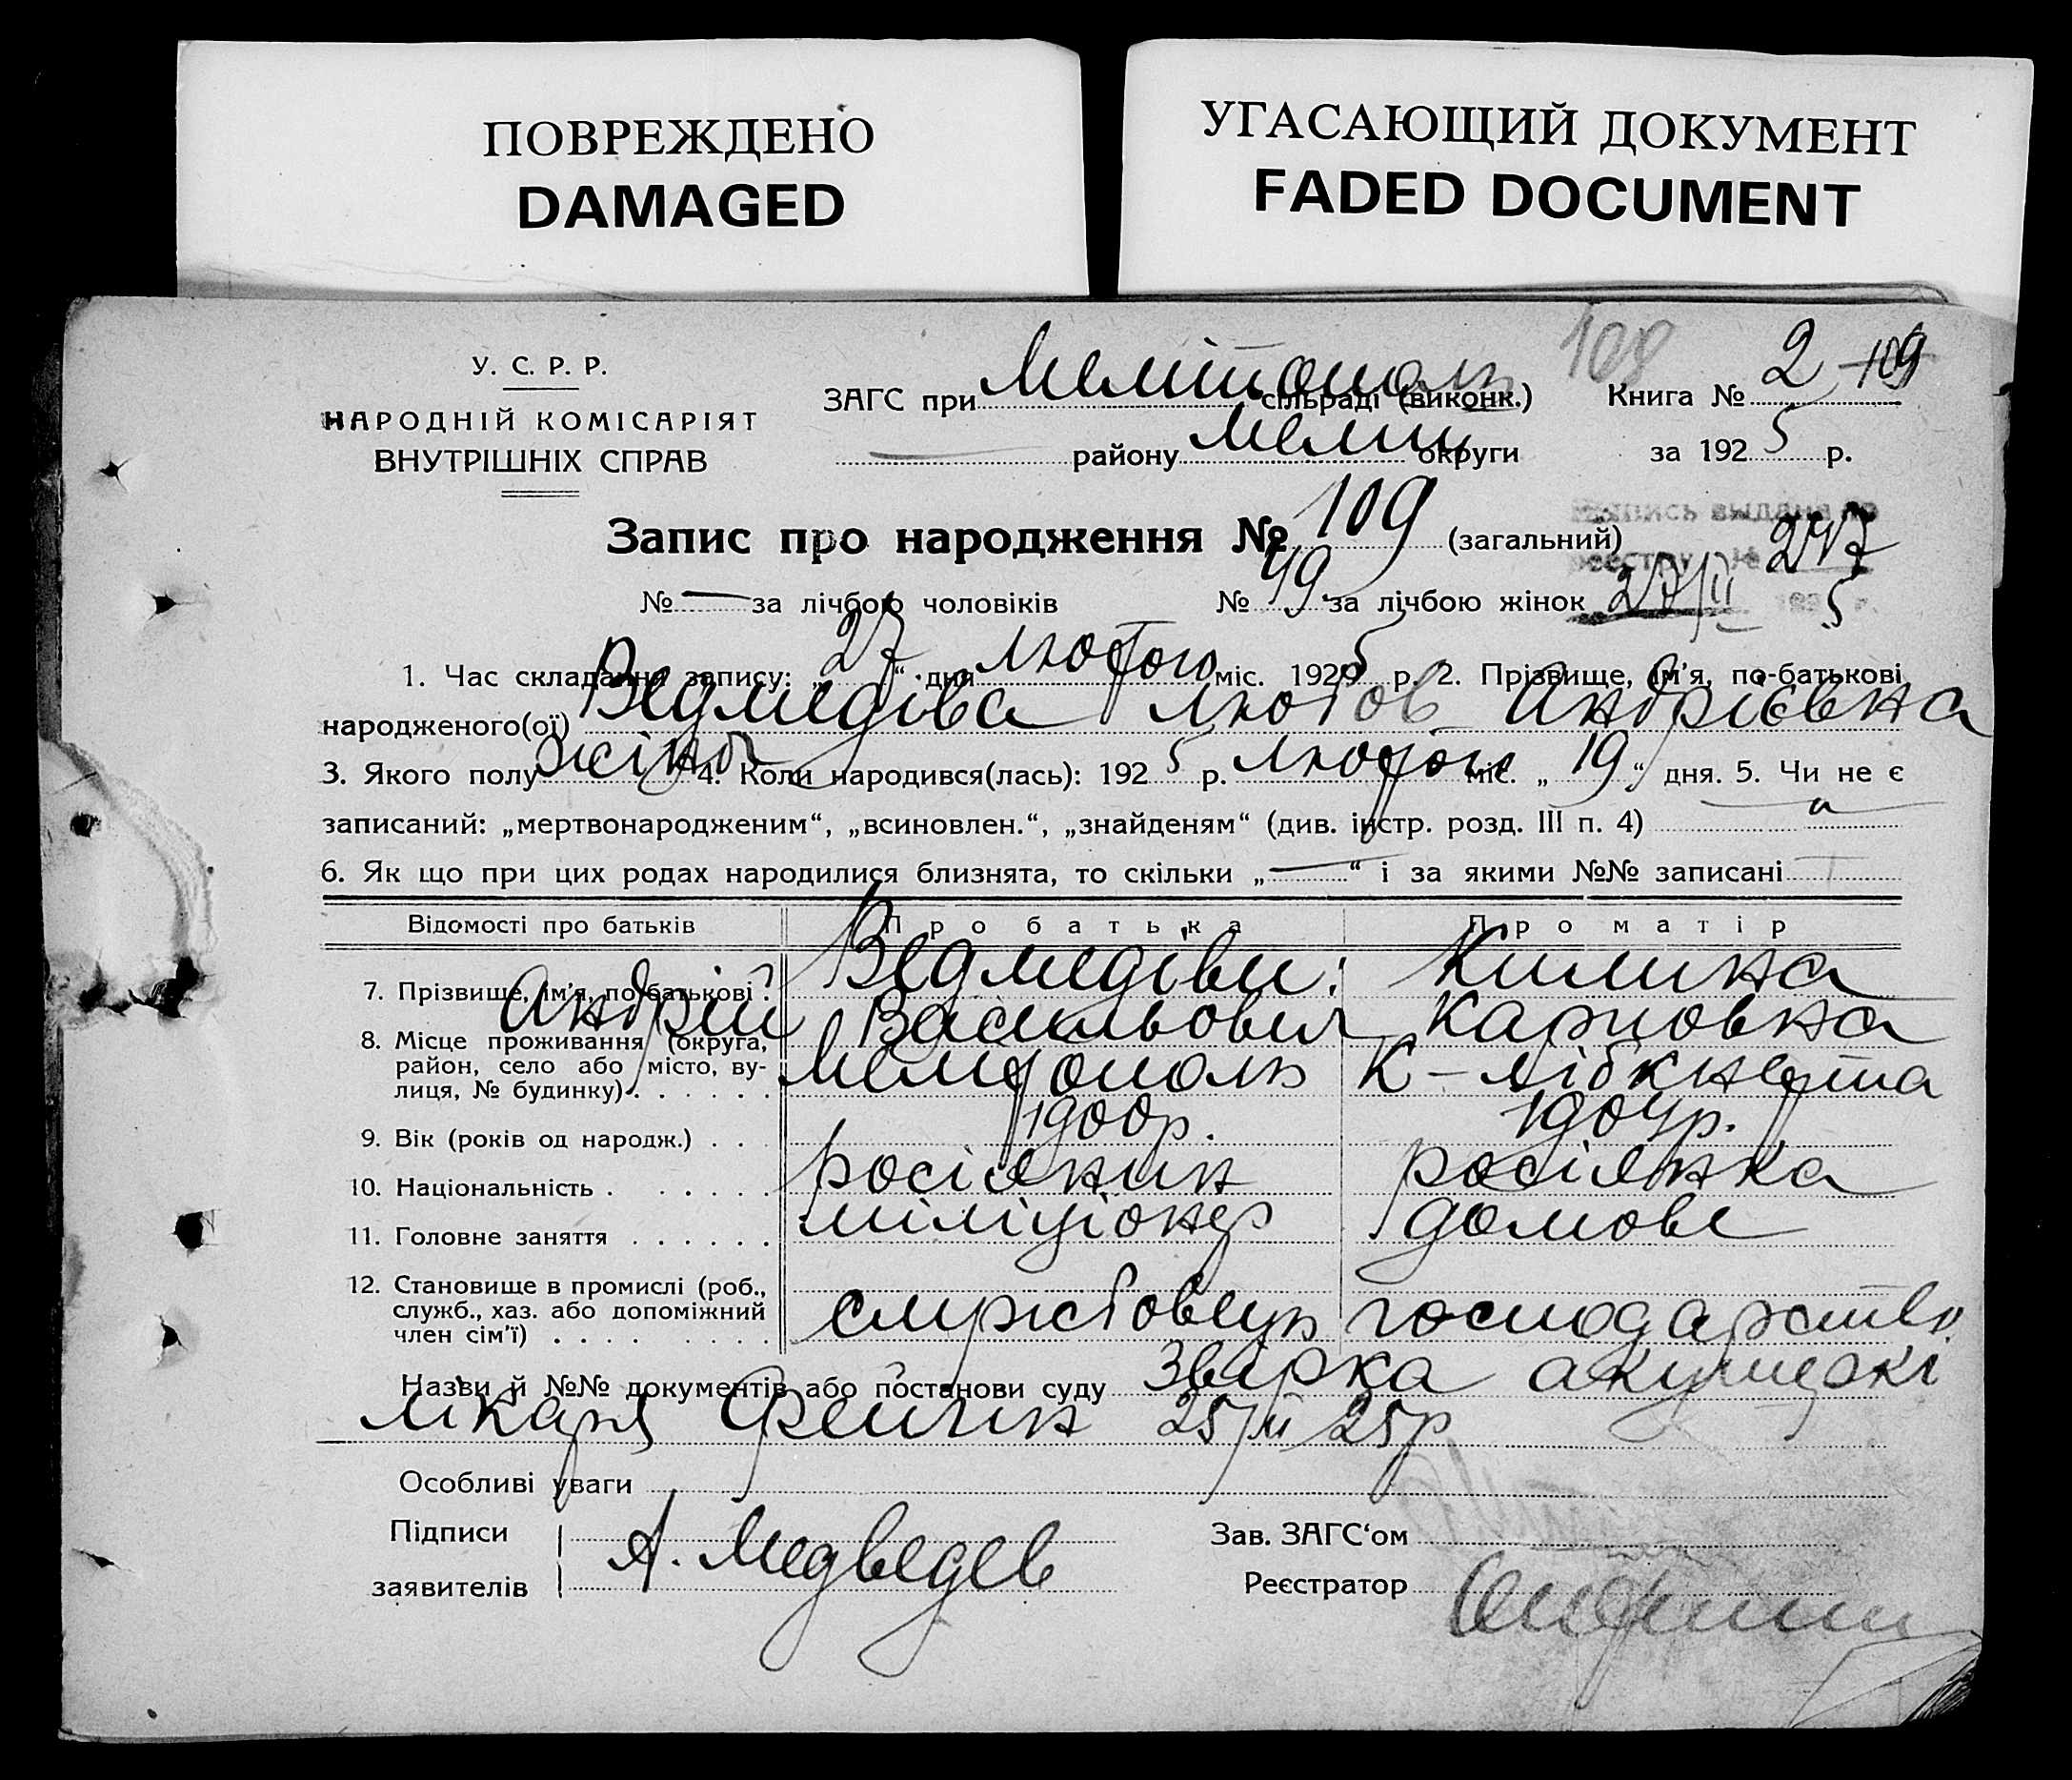 ПОВРЕЖДЕНО
DAMAGED
УГАСАЮЩИЙ ДОКУМЕНТ
FADED DOCUMENT
У. С. Р. Р.
НАРОДНІЙ КОМІСАРІЯТ
ВНУТРІШНІХ СПРАВ
108
ЗАГС при Мелітополь сільраді (виконк.) Книга № 2 109
— району Меліт округи за 1925 р.
Запис про народження № 109 (загальний)
запись выдана по
реестру № 247
№ — за лічбою чоловіків № 49 за лічбою жінок 27/II 5
1. Час складання запису: „27“ дня лютого міс. 1925 р. 2. Прізвище, ім'я, по-батькові
народженого(ої) Ведмедіва Любов Андрієвна
3. Якого полу жіно 4. Коли народився(лась): 1925 р. лютого міс. „19“ дня. 5. Чи не є
записаний: „мертвонародженим“, „всиновлен.“, „знайденям“ (див. інстр. розд. III п. 4)
6. Як що при цих родах народилися близнята, то скільки „—“ і за якими №№ записані
Відомості про батьків Про батька Про матір
7. Прізвище, ім'я, по-батькові . Ведмедіви: Килина
Андрій Васильович Карповна
8. Місце проживання (округа,
район, село або місто, ву-
лиця, № будинку) . . . . . . Мелітополь К-Лібкнехта
9. Вік (років од народж.) . . . 1900р. 1904р.
10. Національність . . . . . . росіянин росіянка
11. Головне заняття . . . . . . міліціонер домове
12. Становище в промислі (роб.,
служб., хаз. або допоміжний
член сім'ї) . . . . . . . . службовець господарство
Назви й №№ документів або постанови суду Звірка акушеркі
лікаря 25/II 25р
Особливі уваги
Підписи
заявителів
А. Медведев
Зав. ЗАГС'ом
Реєстратор